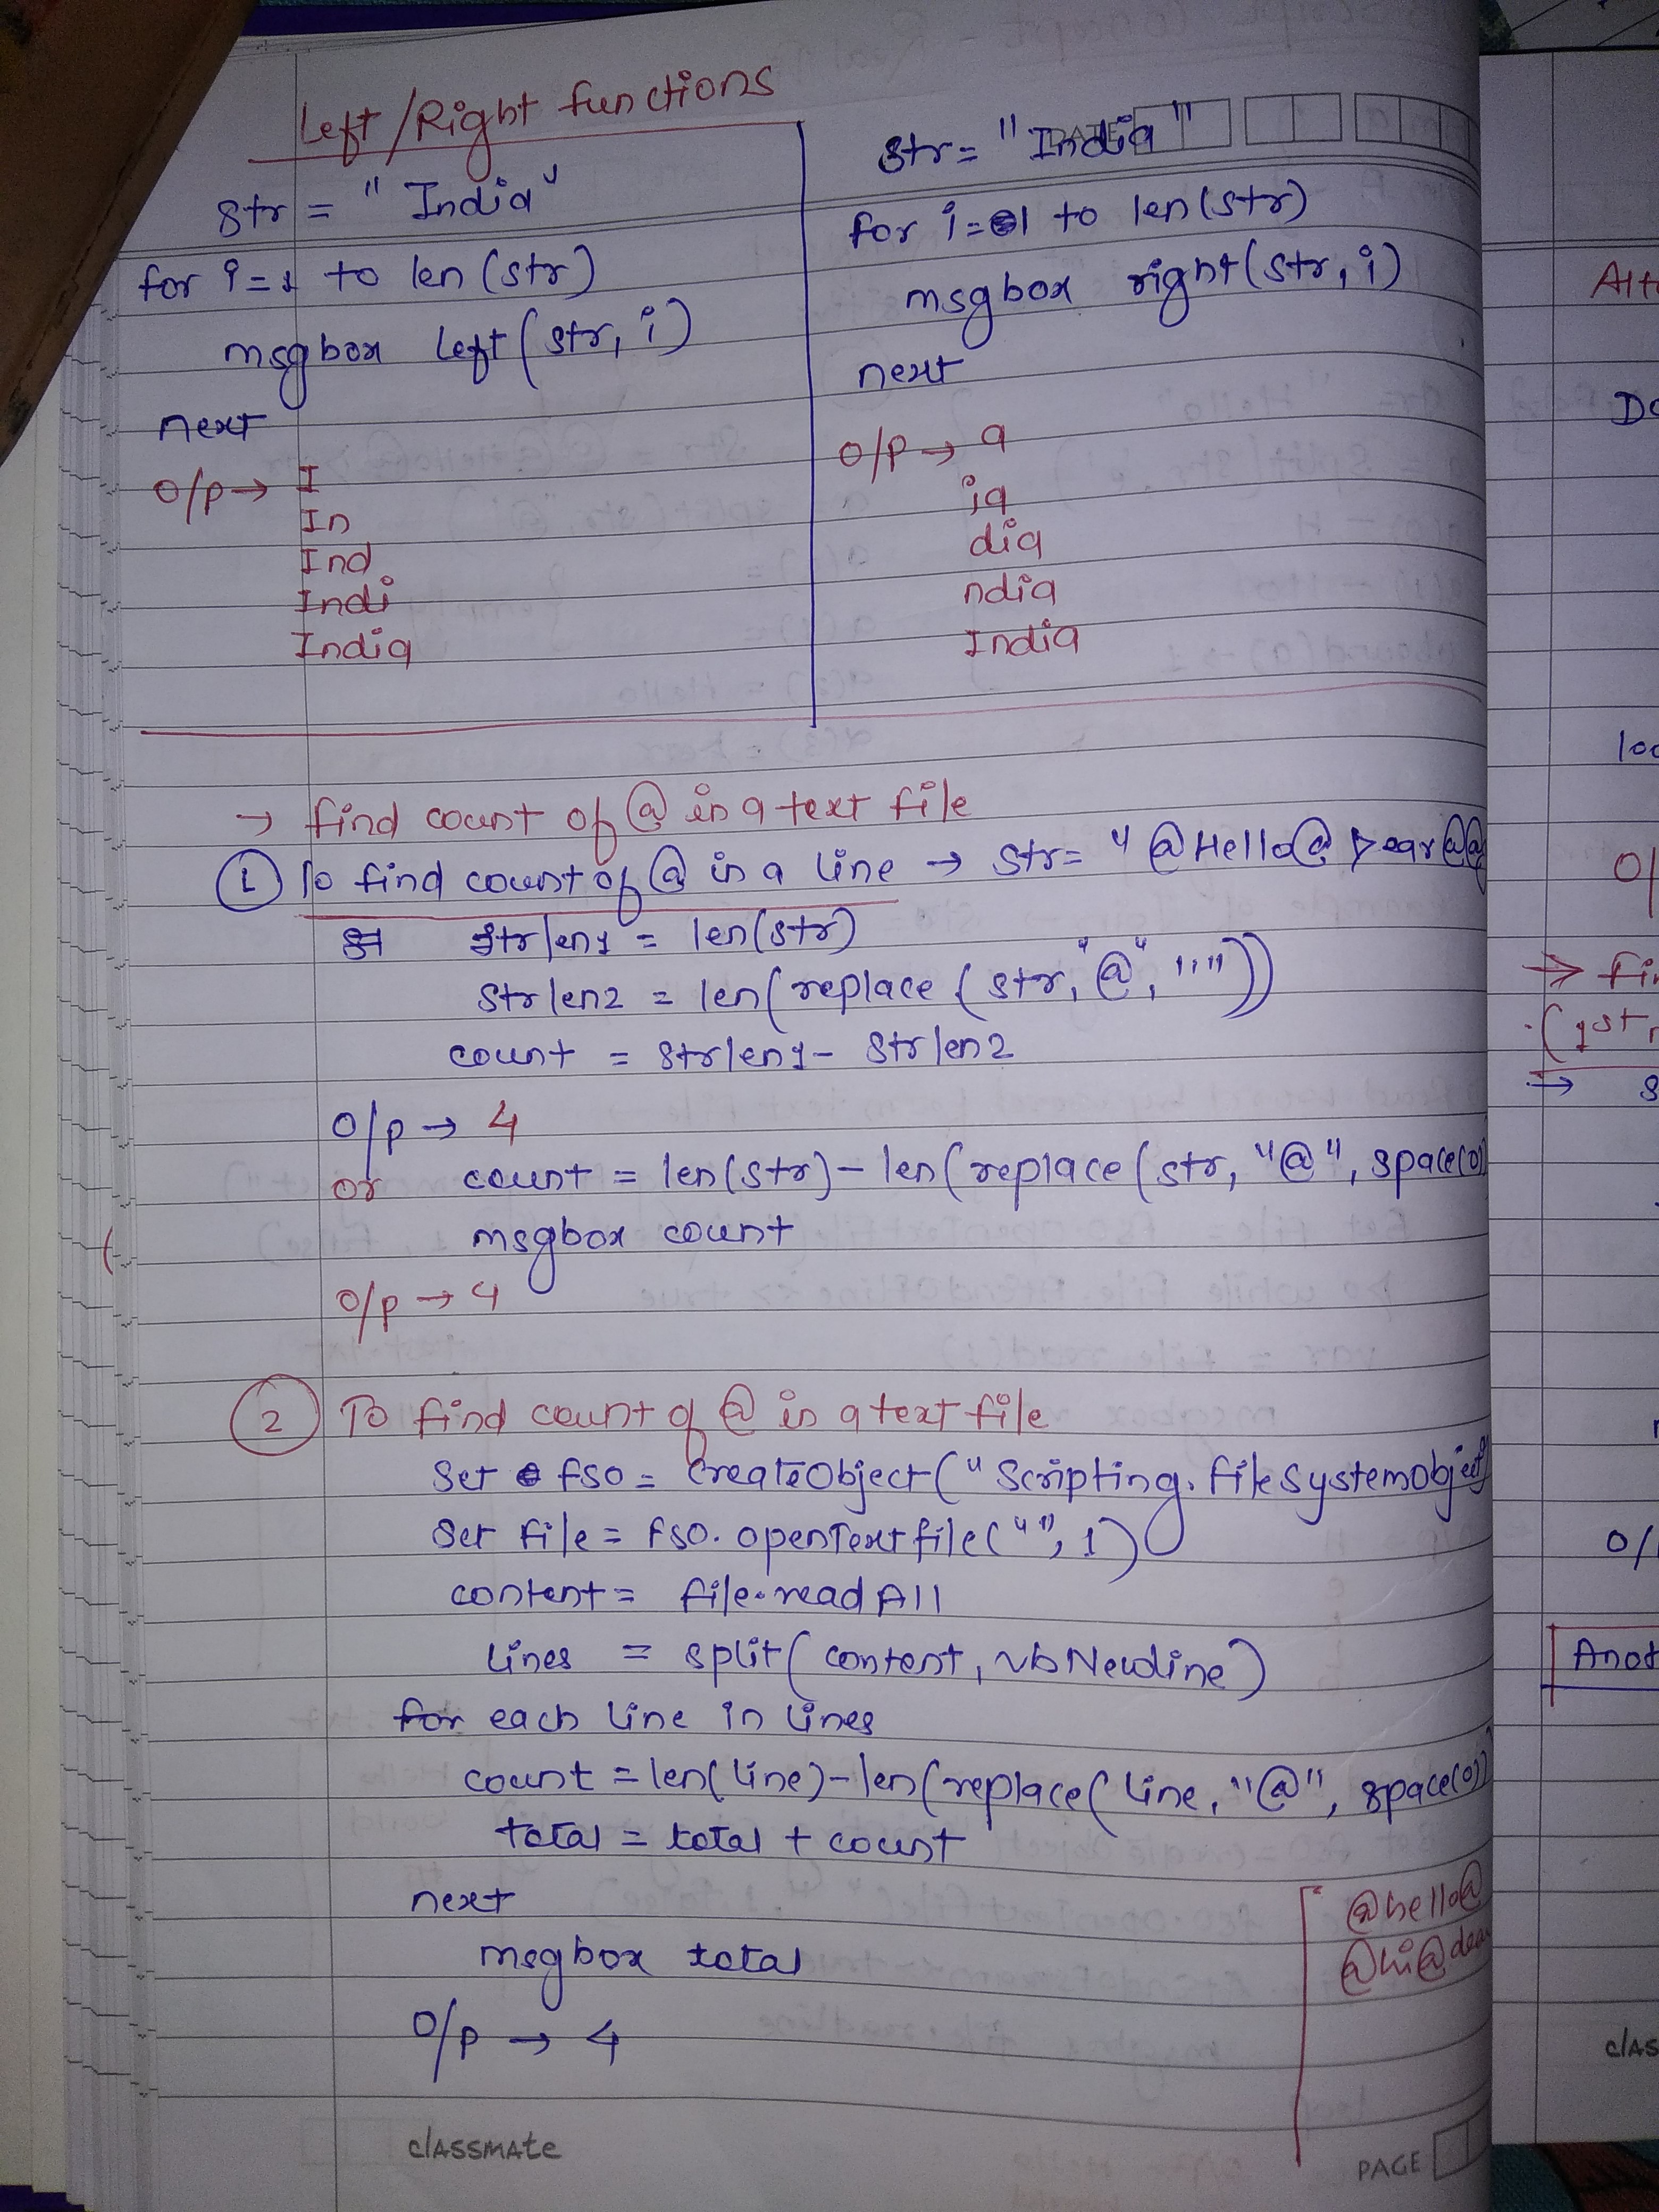 Left/Right functions
str = "India"
for i=1 to len(str)
msgbox left(str, i)
next
o/p → I
In
Ind
Indi
India
str = "India"
for i=1 to len(str)
msgbox right(str, i)
next
o/p → a
ia
dia
ndia
India
→ find count of @ in a text file
1 To find count of @ in a line → str= "@Hello@Dear@@
strlen1 = len(str)
strlen2 = len(replace(str,"@",""))
count = strlen1 - strlen2
o/p → 4
or count = len(str)-len(replace(str,"@",space(0)
msgbox count
o/p → 4
2 To find count of @ in a text file
Set fso = CreateObject("Scripting.filesystemobject
Set file = fso.openTextfile("",1)
content = file.readAll
lines = split(content, vbNewline)
for each line in lines
count = len(line)-len(replace(line,"@",space(0)
total = total + count
next
msgbox total
o/p → 4
@hello@
@hi@dear
classmate
PAGE
DATE
Alt
O/
→ fin
(1st
→ s
O/
Anot
clas